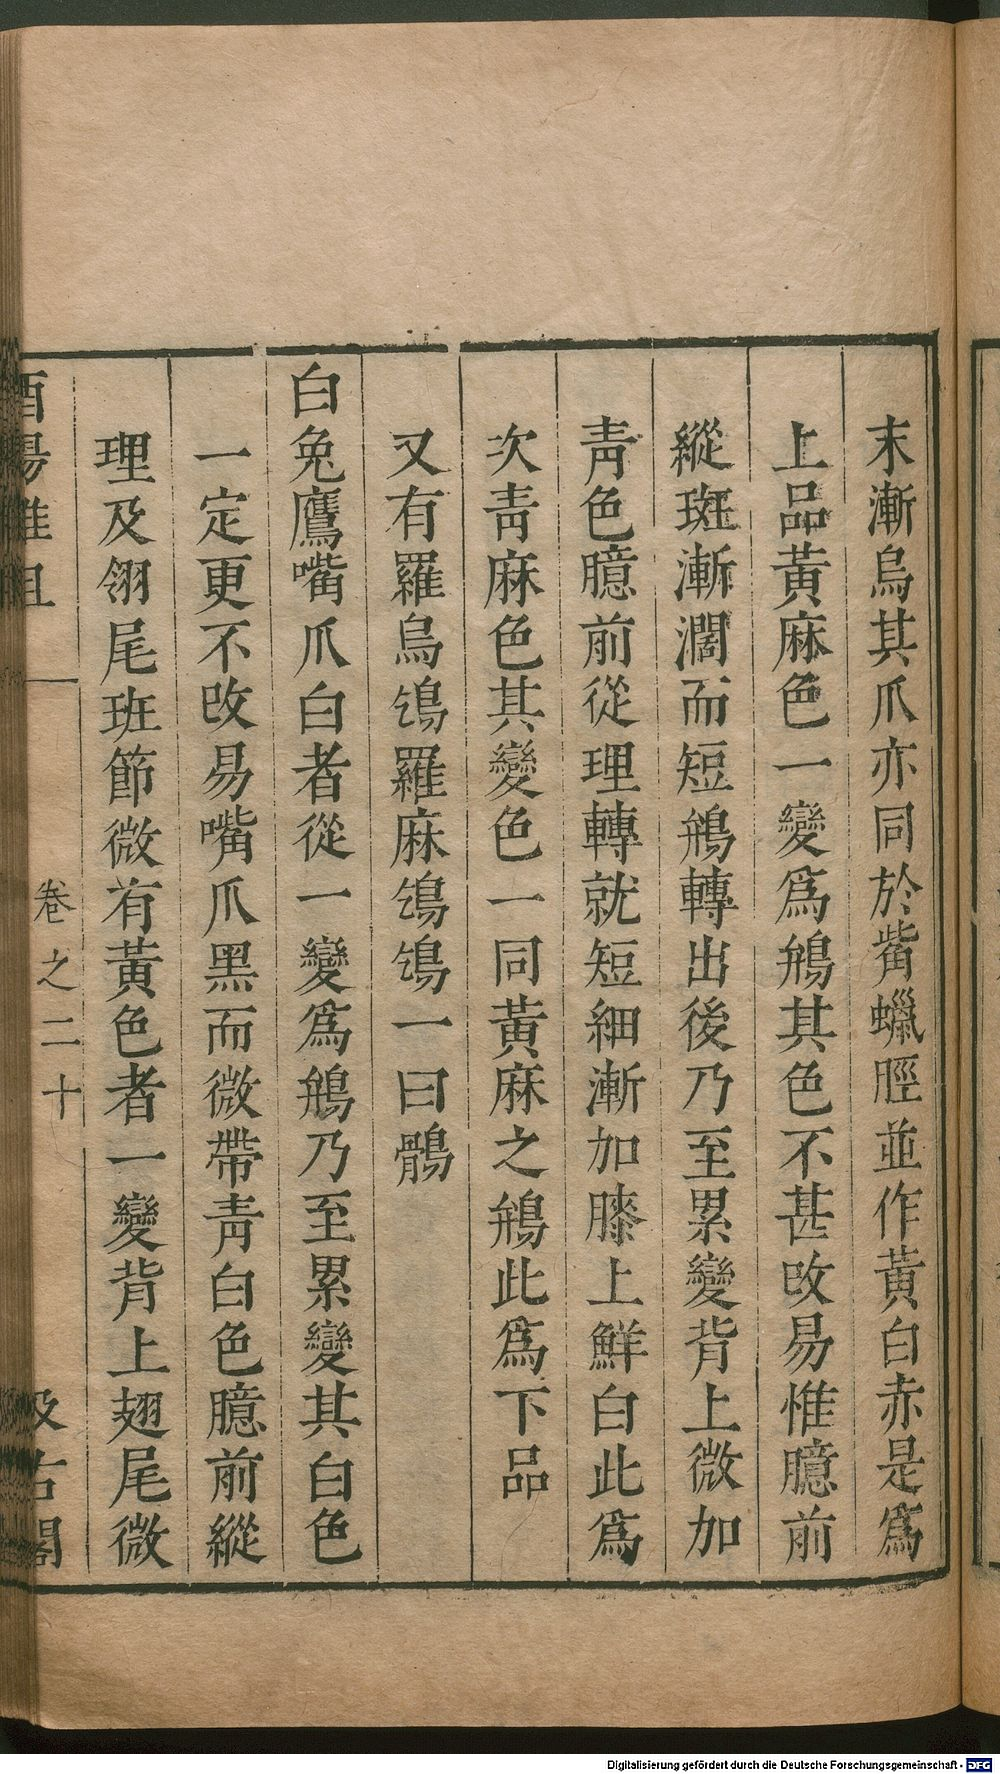 末漸烏其爪亦同於觜蠟脛並作黃白赤是爲
上品黃麻色一變爲鴘其色不甚攺易惟臆前
縱斑漸濶而短鴘轉出後乃至累變背上微加
靑色臆前從理轉就短細漸加膝上鮮白此爲
次靑麻色其變色一同黃麻之鴘此爲下品
又有羅烏鴲羅麻鴲鴲一曰鶻
白兔鷹嘴爪白者從一變爲鴘乃至累變其白色
一定更不攺易嘴爪黑而微帶靑白色臆前縱
理及翎尾班節微有黃色者一變背上翅尾微
酉陽雜俎 卷之二十 汲古閣
Digitalisierung gefördert durch die Deutsche Forschungsgemeinschaft - DFG